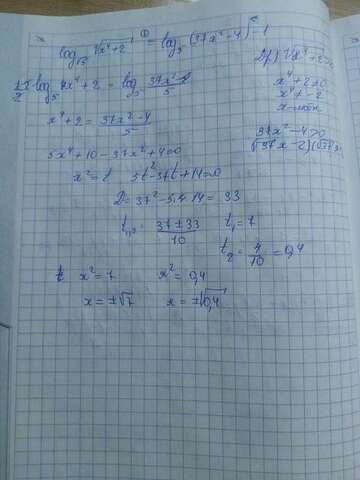 log√5 √(x⁴+2) = log₅ (37x²-4) - 1
log₅ x⁴+2 = log₅ (37x²-4)/5
x⁴+2 = (37x²-4)/5
5x⁴+10-37x²+4=0
x²=t 5t²-37t+14=0
D=37²-5·4·14= 33
t₁,₂ = (37±33)/10 t₁=7
t₂ = 4/10 = 0,4
x²=7 x²=0,4
x=±√7 x=±√0,4
x⁴+2≥0
x⁴≠-2
37x²-4>0